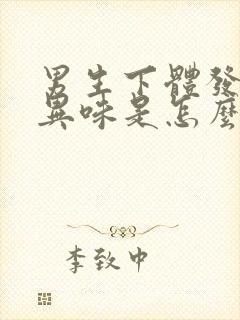 男生下體發
異味是怎麼
李致中